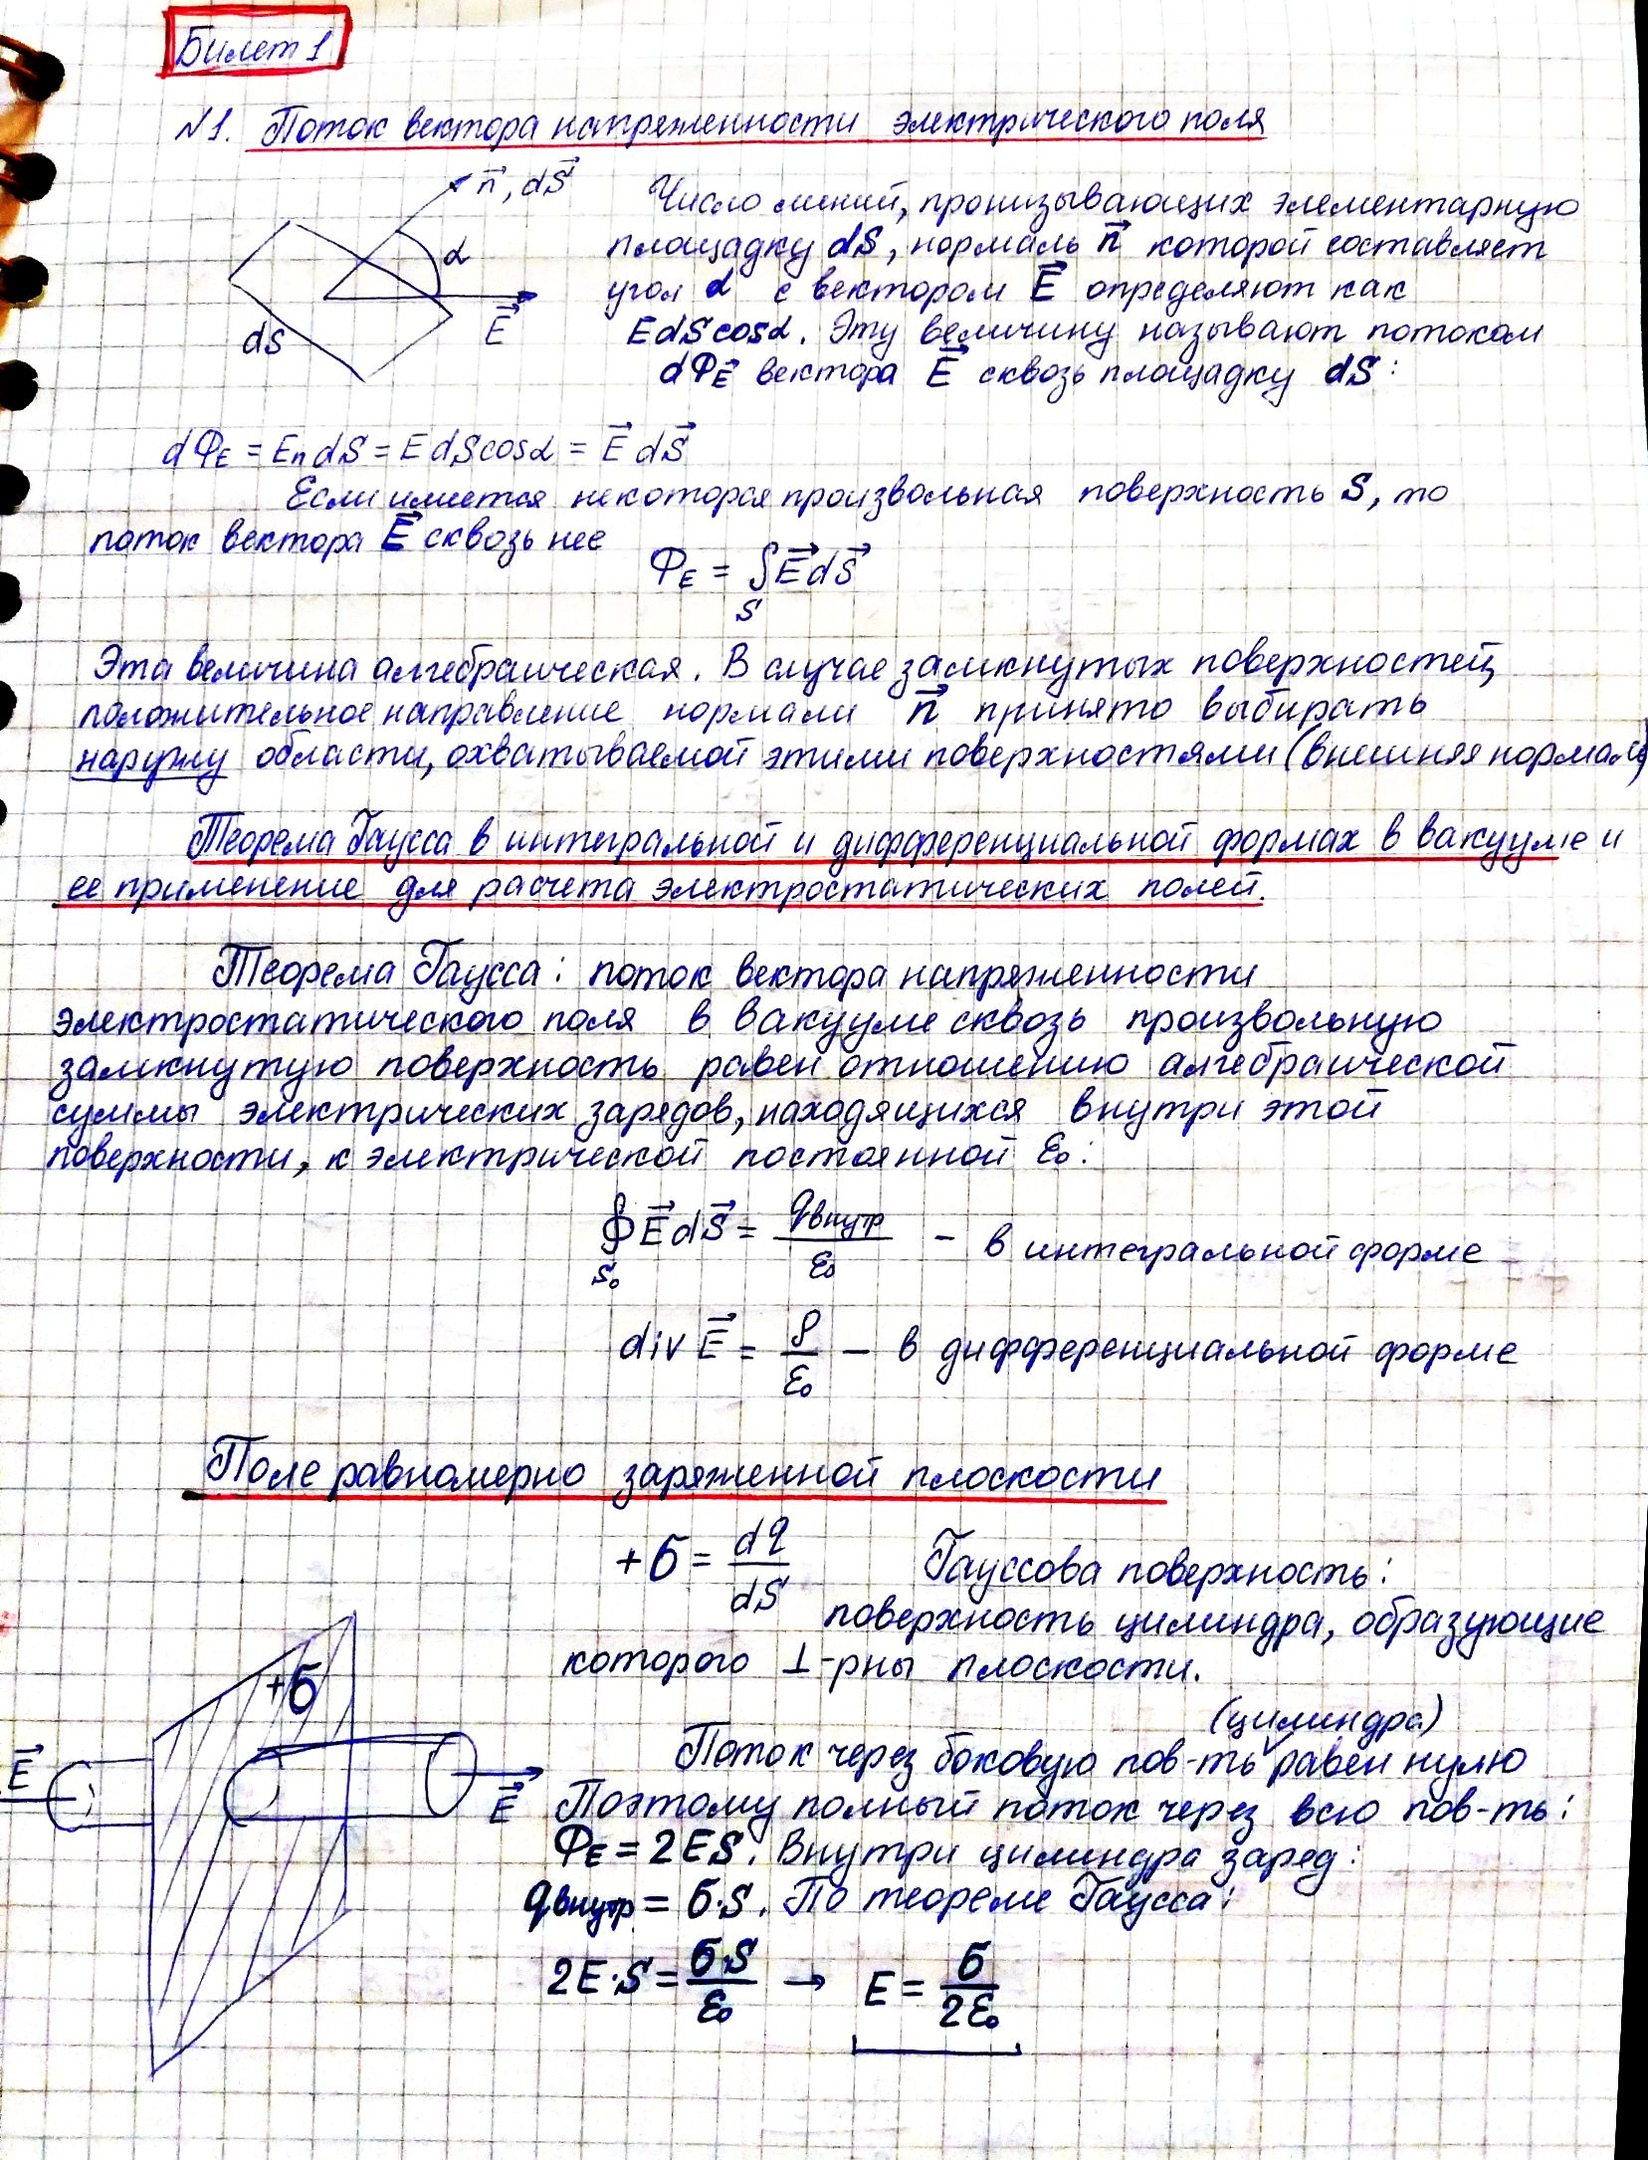 Билет 1
№1. Поток вектора напряженности электрического поля
n⃗, dS⃗
α
E⃗
dS
Число линий, пронизывающих элементарную
площадку dS, нормаль n⃗ которой составляет
угол α с вектором E⃗ определяют как
EdScosα. Эту величину называют потоком
dΦE⃗ вектора E⃗ сквозь площадку dS:
dΦE = EndS = EdScosα = E⃗ dS⃗
Если имеется некоторая произвольная поверхность S, то
поток вектора E⃗ сквозь нее
ΦE = ∫E⃗dS⃗
S
Эта величина алгебраическая. В случае замкнутых поверхностей
положительное направление нормали n⃗ принято выбирать
наружу области, охватываемой этими поверхностями (внешняя нормаль)
Теорема Гаусса в интегральной и дифференциальной формах в вакууме и
ее применение для расчета электростатических полей.
Теорема Гаусса: поток вектора напряженности
электростатического поля в вакууме сквозь произвольную
замкнутую поверхность равен отношению алгебраической
суммы электрических зарядов, находящихся внутри этой
поверхности, к электрической постоянной ε₀:
∮E⃗dS⃗ = qвнутр/ε₀ – в интегральной форме
S₀
div E⃗ = ρ/ε₀ – в дифференциальной форме
Поле равномерно заряженной плоскости
+σ = dq/dS Гауссова поверхность:
поверхность цилиндра, образующие
которого ⊥-рны плоскости.
+σ
E⃗
E⃗
(цилиндра)
Поток через боковую пов-ть равен нулю
Поэтому полный поток через всю пов-ть:
ΦE = 2ES. Внутри цилиндра заряд:
qвнутр = σ·S. По теореме Гаусса:
2E·S = σ·S/ε₀ → E = σ/2ε₀